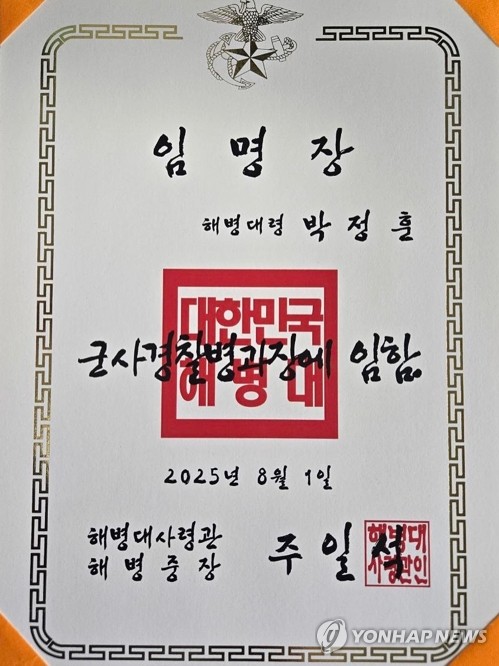 임명장
해병대령 박정훈
대한민국
해병대
군사경찰병과장에 임함.
2025년 8월 1일
해병대사령관
해병중장
주일석
해병대
사령관인
YONHAPNEWS